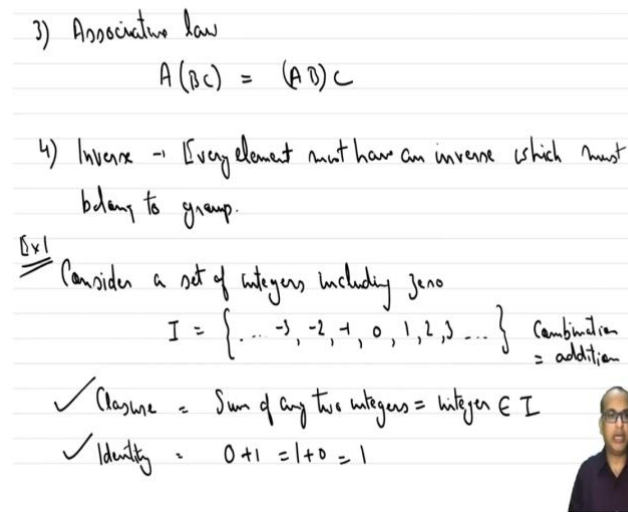 3) Associative law
A(BC) = (AB)C
4) Inverse → Every element must have an inverse which must
belong to group.
Ex1
Consider a set of integers including zero
I = {... -3, -2, -1, 0, 1, 2, 3 ...} Combination
= addition
✓ Closure = Sum of any two integers = integer ∈ I
✓ Identity = 0+1 = 1+0 = 1